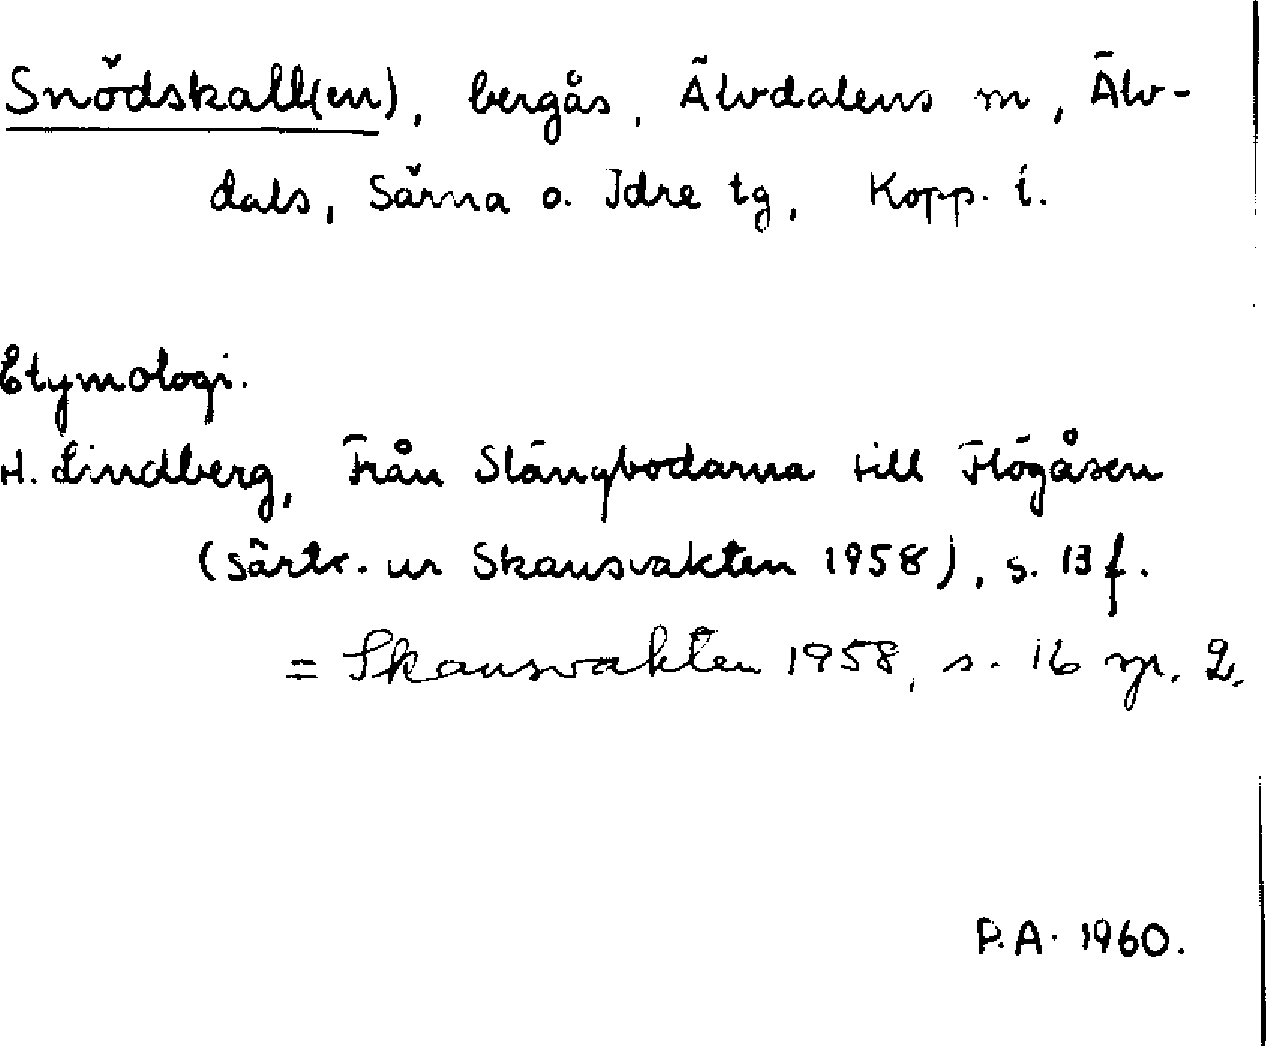 Snödskall(en), bergås, Älvdalens m, Älv-
dals, Särna o. Idre tg, Kopp. l.
Etymologi.
H. Lindberg, Från Stängbodarna till Flögåsen
(särtr. ur Skansvakten 1958), s. 13 f.
= Skansvakten 1958, s. 16 sp. 2.
P.A. 1960.